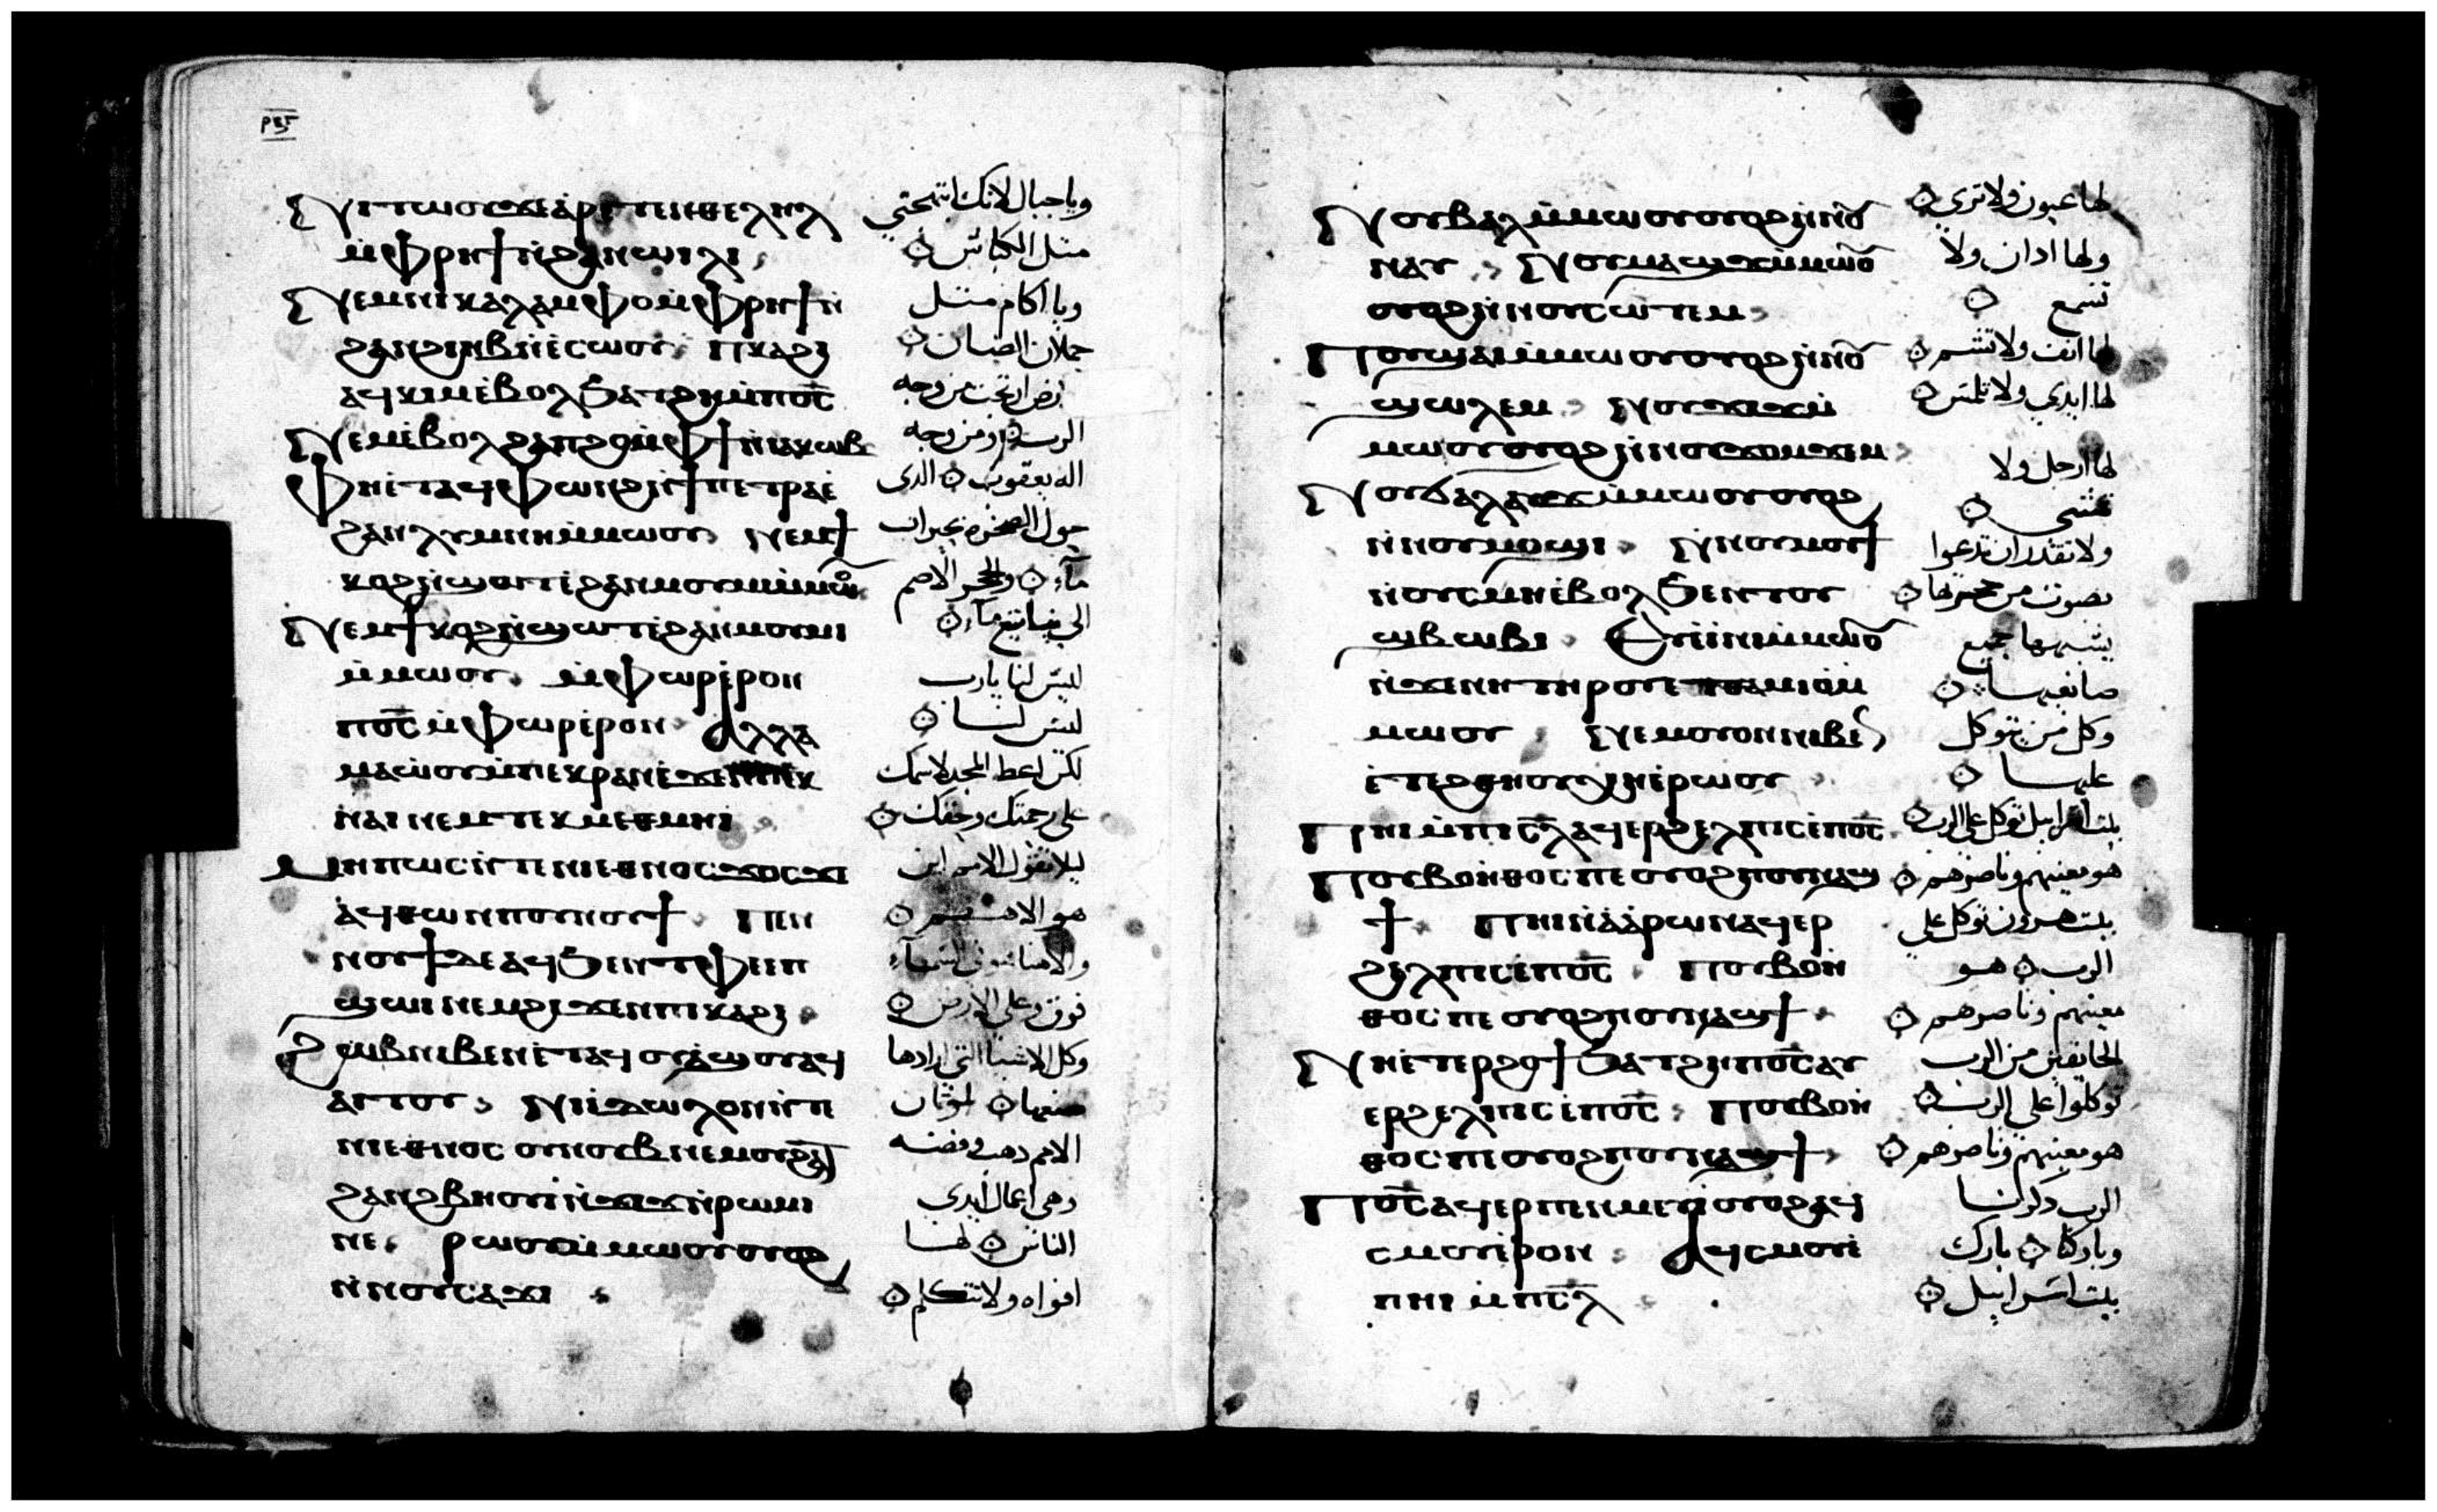 ⲣⲝⲋ
Ⲛⲓⲧⲱⲟⲩϫⲉⲁⲣⲉⲧⲉⲛⲑⲉⲗⲏⲗ وياجبال لانك ابتهجتي
ⲙ̀ⲫⲣⲏϯⲛ̀ϩⲁⲛⲱⲓⲗⲓ مثل الكباش
Ⲛⲉⲙⲛⲓⲕⲁⲗⲁⲙⲫⲟⲙ̀ⲫⲣⲏϯⲛ̀ ويا اكام مثل
ϩⲁⲛϩⲓⲏⲃⲛ̀ⲉ̀ⲥⲱⲟⲩ ⲡⲕⲁϩⲓ حملان الضان
ⲁϥⲕⲓⲙⲉ̀ⲃⲟⲗϧⲁⲧϩⲏⲙ̀ⲡⲟ̅ⲥ̅ من وجه
Ⲛⲉⲙⲉ̀ⲃⲟⲗϩⲁⲡϩⲟⲙ̀ⲫϯⲛ̀ⲓⲁⲕⲱⲃ الرب ومن وجه
Ⲫⲏⲉ̀ⲧⲁϥⲫⲱⲛϩⲛ̀ϯⲡⲉⲧⲣⲁⲉ̀ اله يعقوب الدى
ϩⲁⲛⲗⲩⲙⲛⲏⲙ̀ⲙⲱⲟⲩ Ⲛⲉⲙϯ حول الصخره بحيرات
ⲕⲟϩⲛ̀ϣⲱⲧⲉ̀ϩⲁⲛⲙⲟⲩⲙⲓⲙ̀ⲙⲱⲟⲩ مآء والحجر الاصم
Ⲛⲉⲙϯⲕⲟϩⲛ̀ϣⲱⲧⲉ̀ϩⲁⲛⲙⲟⲩⲙⲓ الى مآء
ⲙ̀ⲙⲱⲟⲩ ⲙ̀ⲫⲱⲣⲉ̀ⲣⲟⲛ ليس لنا يارب
ⲡⲟ̅ⲥ̅ⲙ̀ⲫⲱⲣⲉ̀ⲣⲟⲛ Ⲁⲗⲗⲁ ليس لنا
ⲙⲁⲱⲟⲩⲙ̀ⲡⲉⲕⲣⲁⲛⲉ̀ϫⲉⲛⲡⲉⲕ لكن اعط المجد لاسمك
ⲛⲁⲓⲛⲉⲙⲧⲉⲕⲙⲉⲑⲙⲏⲓ على رحمتك وحقك
Ⲙⲏⲡⲱⲥⲛ̀ⲧⲉⲛⲓⲉⲑⲛⲟⲥϫⲟⲥϫⲉ ليلا تقول الامم اين
ⲁϥⲑⲱⲛⲡⲟⲩⲛⲟⲩϯ Ⲡⲉⲛ هو الاههم
ⲛⲟⲩϯⲇⲉⲁϥϧⲉⲛⲧⲫⲉⲙ̀ⲡ والاهنا هو فى السمآء
ϣⲱⲓⲛⲉⲙϩⲓϫⲉⲛⲡⲓⲕⲁϩⲓ فوق وعلى الارض
Ϩⲱⲃⲛⲓⲃⲉⲛⲉ̀ⲧⲁϥⲟⲩⲁϣⲟⲩⲁϥ وكل الاشيا التى ارادها
ⲁⲓⲧⲟⲩ Ⲛⲓⲓⲇⲱⲗⲟⲛⲛ̀ⲧⲉ صنعها اوثان
ⲛⲓⲉⲑⲛⲟⲥ ⲟⲩⲛⲟⲩⲃⲛⲉⲙⲟⲩϩⲁⲧ الامم دهب وفضه
ϩⲁⲛϩⲃⲏⲟⲩⲓ̀ⲛ̀ϫⲓϫⲛ̀ⲣⲱⲙⲓ وهى اعمال ايدى
ⲛⲉ ⲣⲱⲟⲩⲙ̀ⲙⲱⲟⲩⲟⲩⲟϩ الناس لها
ⲛ̀ⲛⲟⲩⲥⲁϫⲓ افواه ولا تتكلم
Ⲛⲟⲩⲃⲁⲗⲙ̀ⲙⲱⲟⲩⲟⲩⲟϩⲛ̀ⲛⲟⲩ لها عيون ولا ترى
ⲛⲁⲩ Ⲛⲟⲩⲙⲁϣϫⲙ̀ⲙⲱⲟⲩ ولها ادان ولا
ⲟⲩⲟϩⲛ̀ⲛⲟⲩⲥⲱⲧⲉⲙ تسمع
Ⲡⲟⲩϣⲁⲓⲙ̀ⲙⲱⲟⲩⲟⲩⲟϩⲛ̀ⲛⲟⲩ لها انف ولا تشم
ϣⲱⲗⲉⲙ Ⲛⲟⲩϫⲓϫⲙ̀ لها ايدي ولا تلمس
ⲙⲱⲟⲩⲟⲩⲟϩⲛ̀ⲛⲟⲩϫⲟⲙϫⲉⲙ
Ⲛⲟⲩϭⲁⲗⲁⲩϫⲙ̀ⲙⲱⲟⲩⲟⲩⲟϩ لها ارجل ولا
ⲛ̀ⲛⲟⲩⲙⲟϣⲓ Ⲛ̀ⲛⲟⲩⲙⲟⲩϯ تمشى
ⲛⲟⲩⲥⲙⲏⲉ̀ⲃⲟⲗϧⲉⲛⲧⲟⲩ ولا تقدر ان تدعوا
ϣⲃⲱⲃⲓ Ⲉⲩⲉ̀ⲓⲛⲓⲙ̀ⲙⲱⲟⲩ بصوت من حنجرتها
ⲛ̀ϫⲉⲛⲏⲧⲏⲣⲟⲩⲉⲧⲑⲁⲙⲓⲟ̀ⲙ̀ يشبهها جميع
ⲙⲱⲟⲩ Ⲛⲉⲙⲟⲩⲟⲛⲛⲓⲃⲉⲛ صانعيها
ⲉ̀ⲧⲉϩⲑⲏⲟⲩⲭⲏⲉ̀ⲣⲱⲟⲩ وكل من يتوكل عليها
Ⲡⲏⲓⲙ̀ⲡⲓⲥ̅ⲗ̅ⲁϥⲉⲣϩⲉⲗⲡⲓⲥⲉ̀ⲡⲟ̅ⲥ̅ بيت اسراييل توكل على الرب
Ⲡⲟⲩⲃⲟⲏ̀ⲑⲟⲥⲡⲉⲟⲩⲟϩⲡⲟⲩⲛⲁϣ هو معينهم وناصرهم
ϯ Ⲡⲏⲓⲛ̀ⲁⲁ̀ⲣⲱⲛⲁϥⲉⲣ بيت هرون توكل على
ϩⲉⲗⲡⲓⲥⲉ̀ⲡⲟ̅ⲥ̅ Ⲡⲟⲩⲃⲟⲏ̀ الرب هو
ⲑⲟⲥⲡⲉⲟⲩⲟϩⲡⲟⲩⲛⲁϣϯ معينهم وناصرهم
Ⲛⲏⲉ̀ⲧⲉⲣϩⲟϯϧⲁⲧϩⲏⲙ̀ⲡⲟ̅ⲥ̅ⲁⲩ الخايفين من الرب
ⲉⲣϩⲉⲗⲡⲓⲥⲉ̀ⲡⲟ̅ⲥ̅ Ⲡⲟⲩⲃⲟⲏ̀ توكلوا على الرب
ⲑⲟⲥⲡⲉⲟⲩⲟϩⲡⲟⲩⲛⲁϣϯ هو معينهم وناصرهم
Ⲡⲟ̅ⲥ̅ⲁϥⲉⲣⲡⲉⲛⲙⲉⲩⲓ̀ⲟⲩⲟϩⲁϥ الرب دكرنا
ⲥⲙⲟⲩⲉ̀ⲣⲟⲛ Ⲁϥⲥⲙⲟⲩⲉ̀ وباركنا بارك
ⲡⲏⲓⲙ̀ⲡⲓⲥ̅ⲗ̅ بيت اسراييل